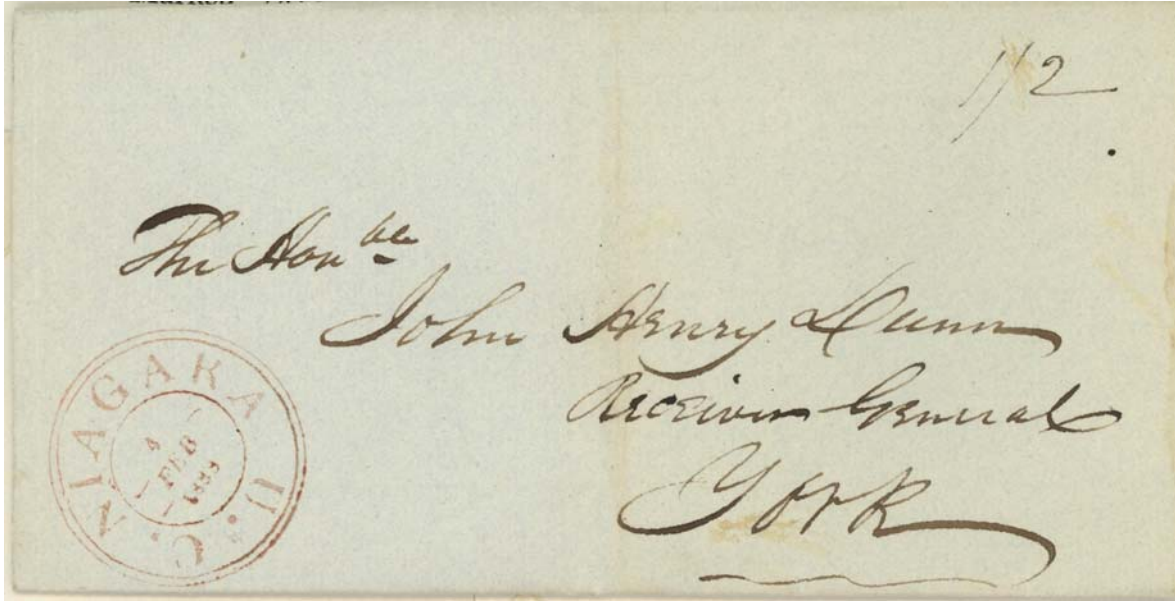 1/2
The Honble
John Henry Dunn
Receiver General
York
NIAGARA U.C.
4
FEB